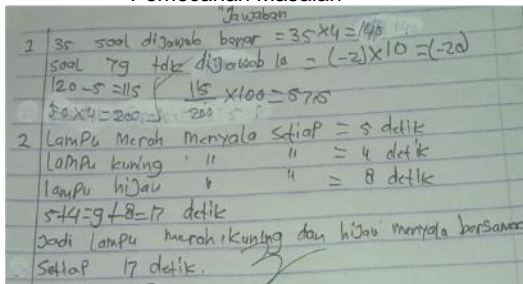 Pemecahan Masalah
Jawaban
1 35 soal dijawab benar = 35×4=140
soal yg tdk dijawab 10 = (-2)×10=(-20)
120-5=115 115/200 ×100=57,5
50×4=200
2 Lampu Merah menyala setiap = 5 detik
Lampu kuning " " = 4 detik
lampu hijau " " = 8 detik
5+4=9+8=17 detik
Jadi lampu merah, kuning dan hijau menyala bersamaan
Setiap 17 detik.